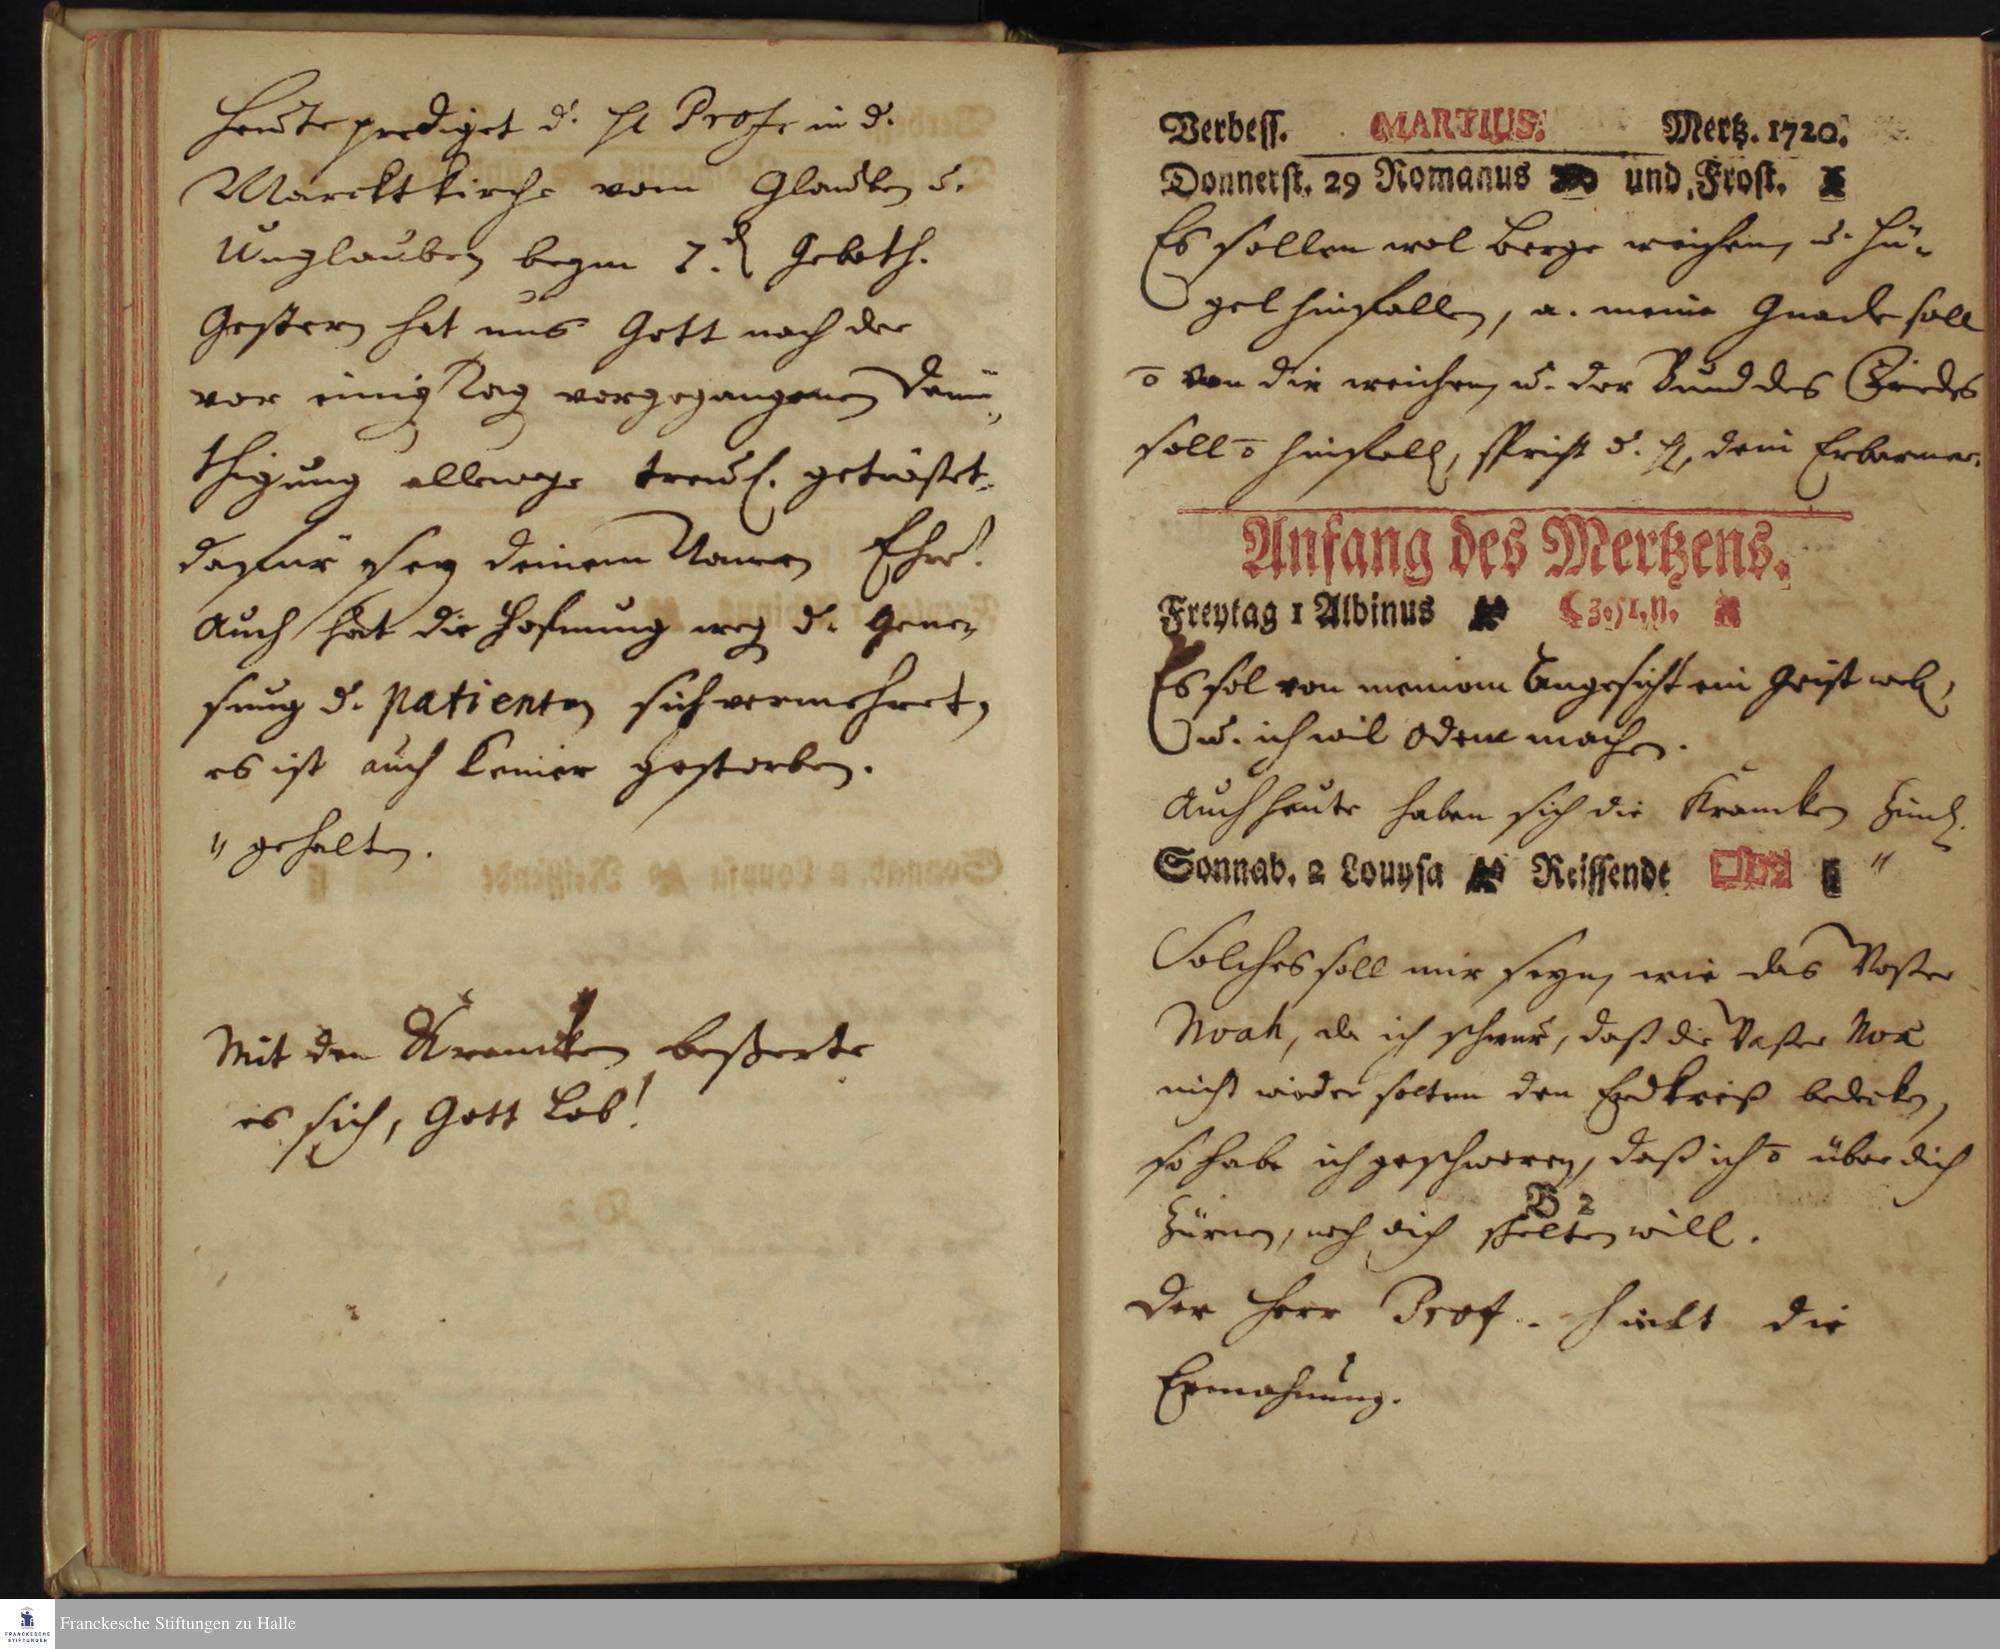 Heute prediget d. H. Prof. in d.
Marcktkirche vom Glauben u.
Unglauben beym 1. Geboth.
Gestern hat uns Gott nach der
vor einig Tag vorgegangenen Demü„
thigung allewege treul. getröstet.
dafür sey deinem Namen Ehre!
Auch hat die Hofnung weg d. Gene„
sung d. patienten sich vermehret,
es ist auch keiner gestorben.
" gehalten.
Mit den Krancken beßerte
es sich, Gott Lob!
Verbess. MARTIUS. Mertz. 1720.
Donnerst. 29 Romanus und Frost.
Es sollen wol Berge weichen, u. Hü„
gel hinfallen, a. meine Gnade soll
õ von dir weichen, u. der Bund des Friedes
soll õ hinfall, spricht d. H. dein Erbarmer.
Anfang des Mertzens.
Freytag 1 Albinus
Es sol von meinem Angesicht ein Geist web,
u. ich wil Odem machen.
Auch heute haben sich die Krancken
Sonnab. 2 Louysa Reissende "
Solches soll mir seyn, wie das Waßer
Noah, da ich schwur, daß die Waßer Noä
nicht wieder solten den Erdkreiß bedecken,
so habe ich geschworen, daß ich õ über dich
B 2
zürnen, noch dich schelten will.
Der Herr Prof. hielt die
Ermahnung.
FRANCKESCHE
STIFTUNGEN
Franckesche Stiftungen zu Halle